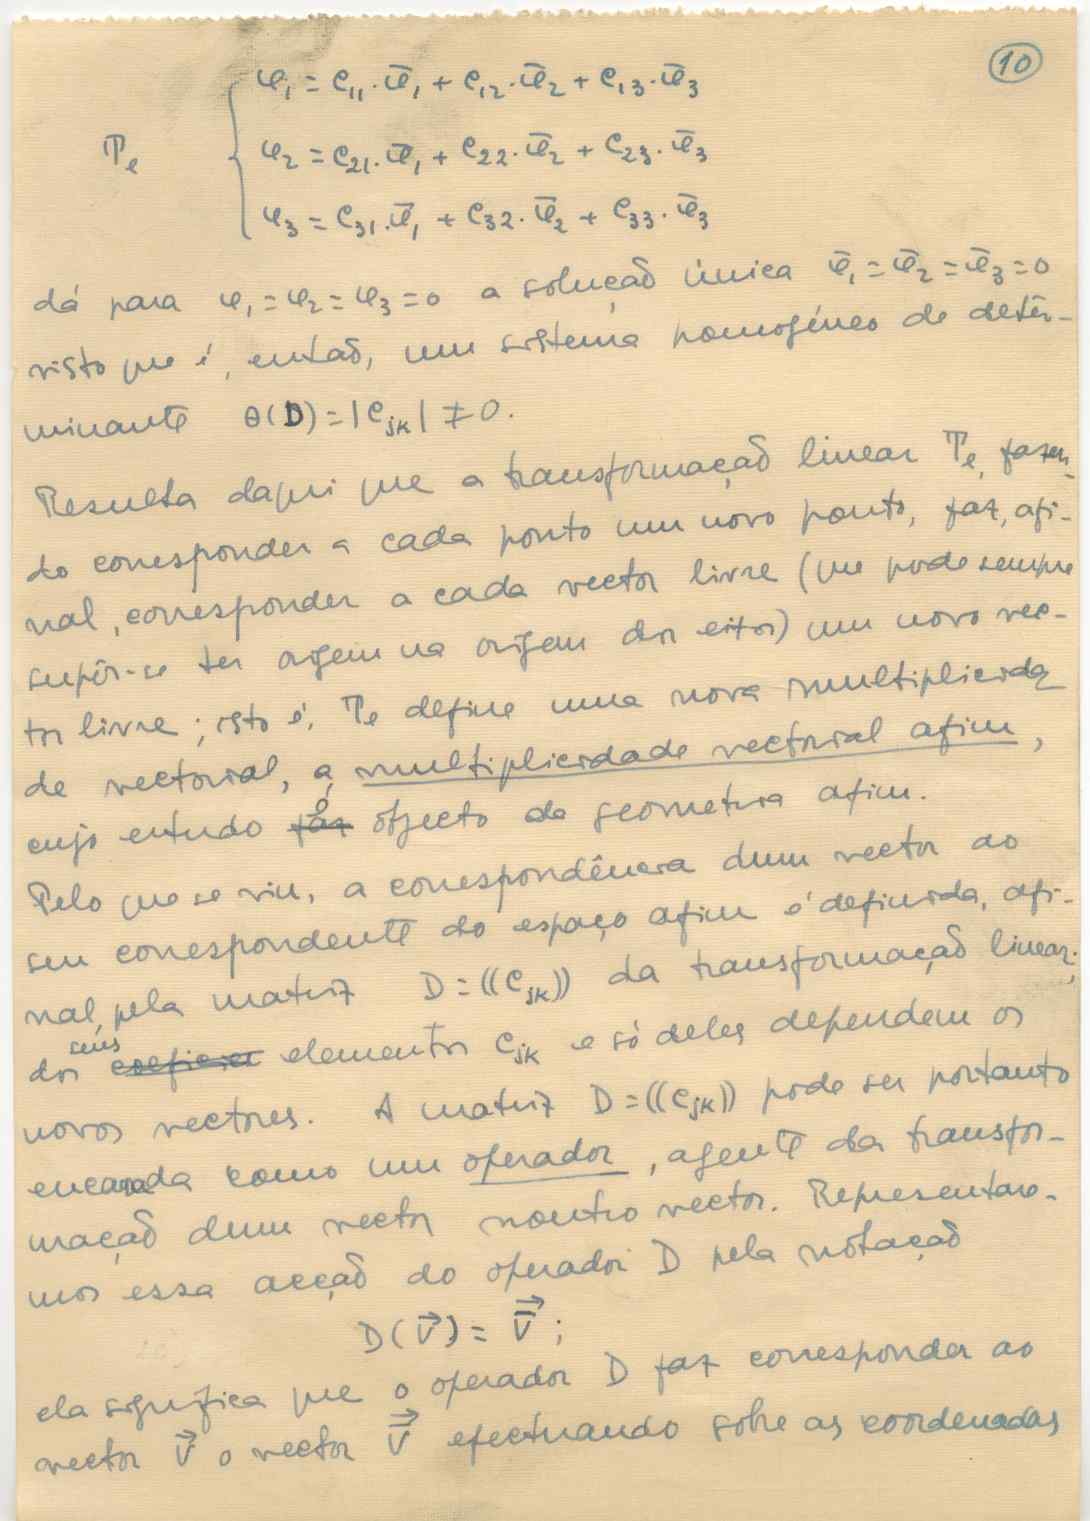 10
φ₁ = c₁₁.φ̄₁ + c₁₂.φ̄₂ + c₁₃.φ̄₃
Tₑ { φ₂ = c₂₁.φ̄₁ + c₂₂.φ̄₂ + c₂₃.φ̄₃
φ₃ = c₃₁.φ̄₁ + c₃₂.φ̄₂ + c₃₃.φ̄₃
dá para φ₁ = φ₂ = φ₃ = 0 a solução única φ̄₁ = φ̄₂ = φ̄₃ = 0
visto que é, então, um sistema homogéneo de deter-
minante θ(D) = |cⱼₖ| ≠ 0.
Resulta daqui que a transformação linear Tₑ, fazen-
do corresponder a cada ponto um novo ponto, faz, afi-
nal, corresponder a cada vector livre (que pode sempre
supôr-se ter origem na origem dos eixos) um novo vec-
tor livre; isto é, Tₑ define uma nova multiplicida
de vectorial, a multiplicidade vectorial afim,
cujo estudo faz é objecto da geometria afim.
Pelo que se viu, a correspondência dum vector ao
seu correspondente do espaço afim é definida, afi-
nal, pela matriz D = ((cⱼₖ)) da transformação linear;
dos coeficien seus elementos cⱼₖ e só deles dependem os
novos vectores. A matriz D = ((cⱼₖ)) pode ser portanto
encarada como um operador, agente da transfor-
mação dum vector noutro vector. Representare-
mos essa acção do operador D pela notação
D(V⃗) = V̄⃗ ;
ela significa que o operador D faz corresponder ao
vector V⃗ o vector V̄⃗ efectuando sobre as coordenadas